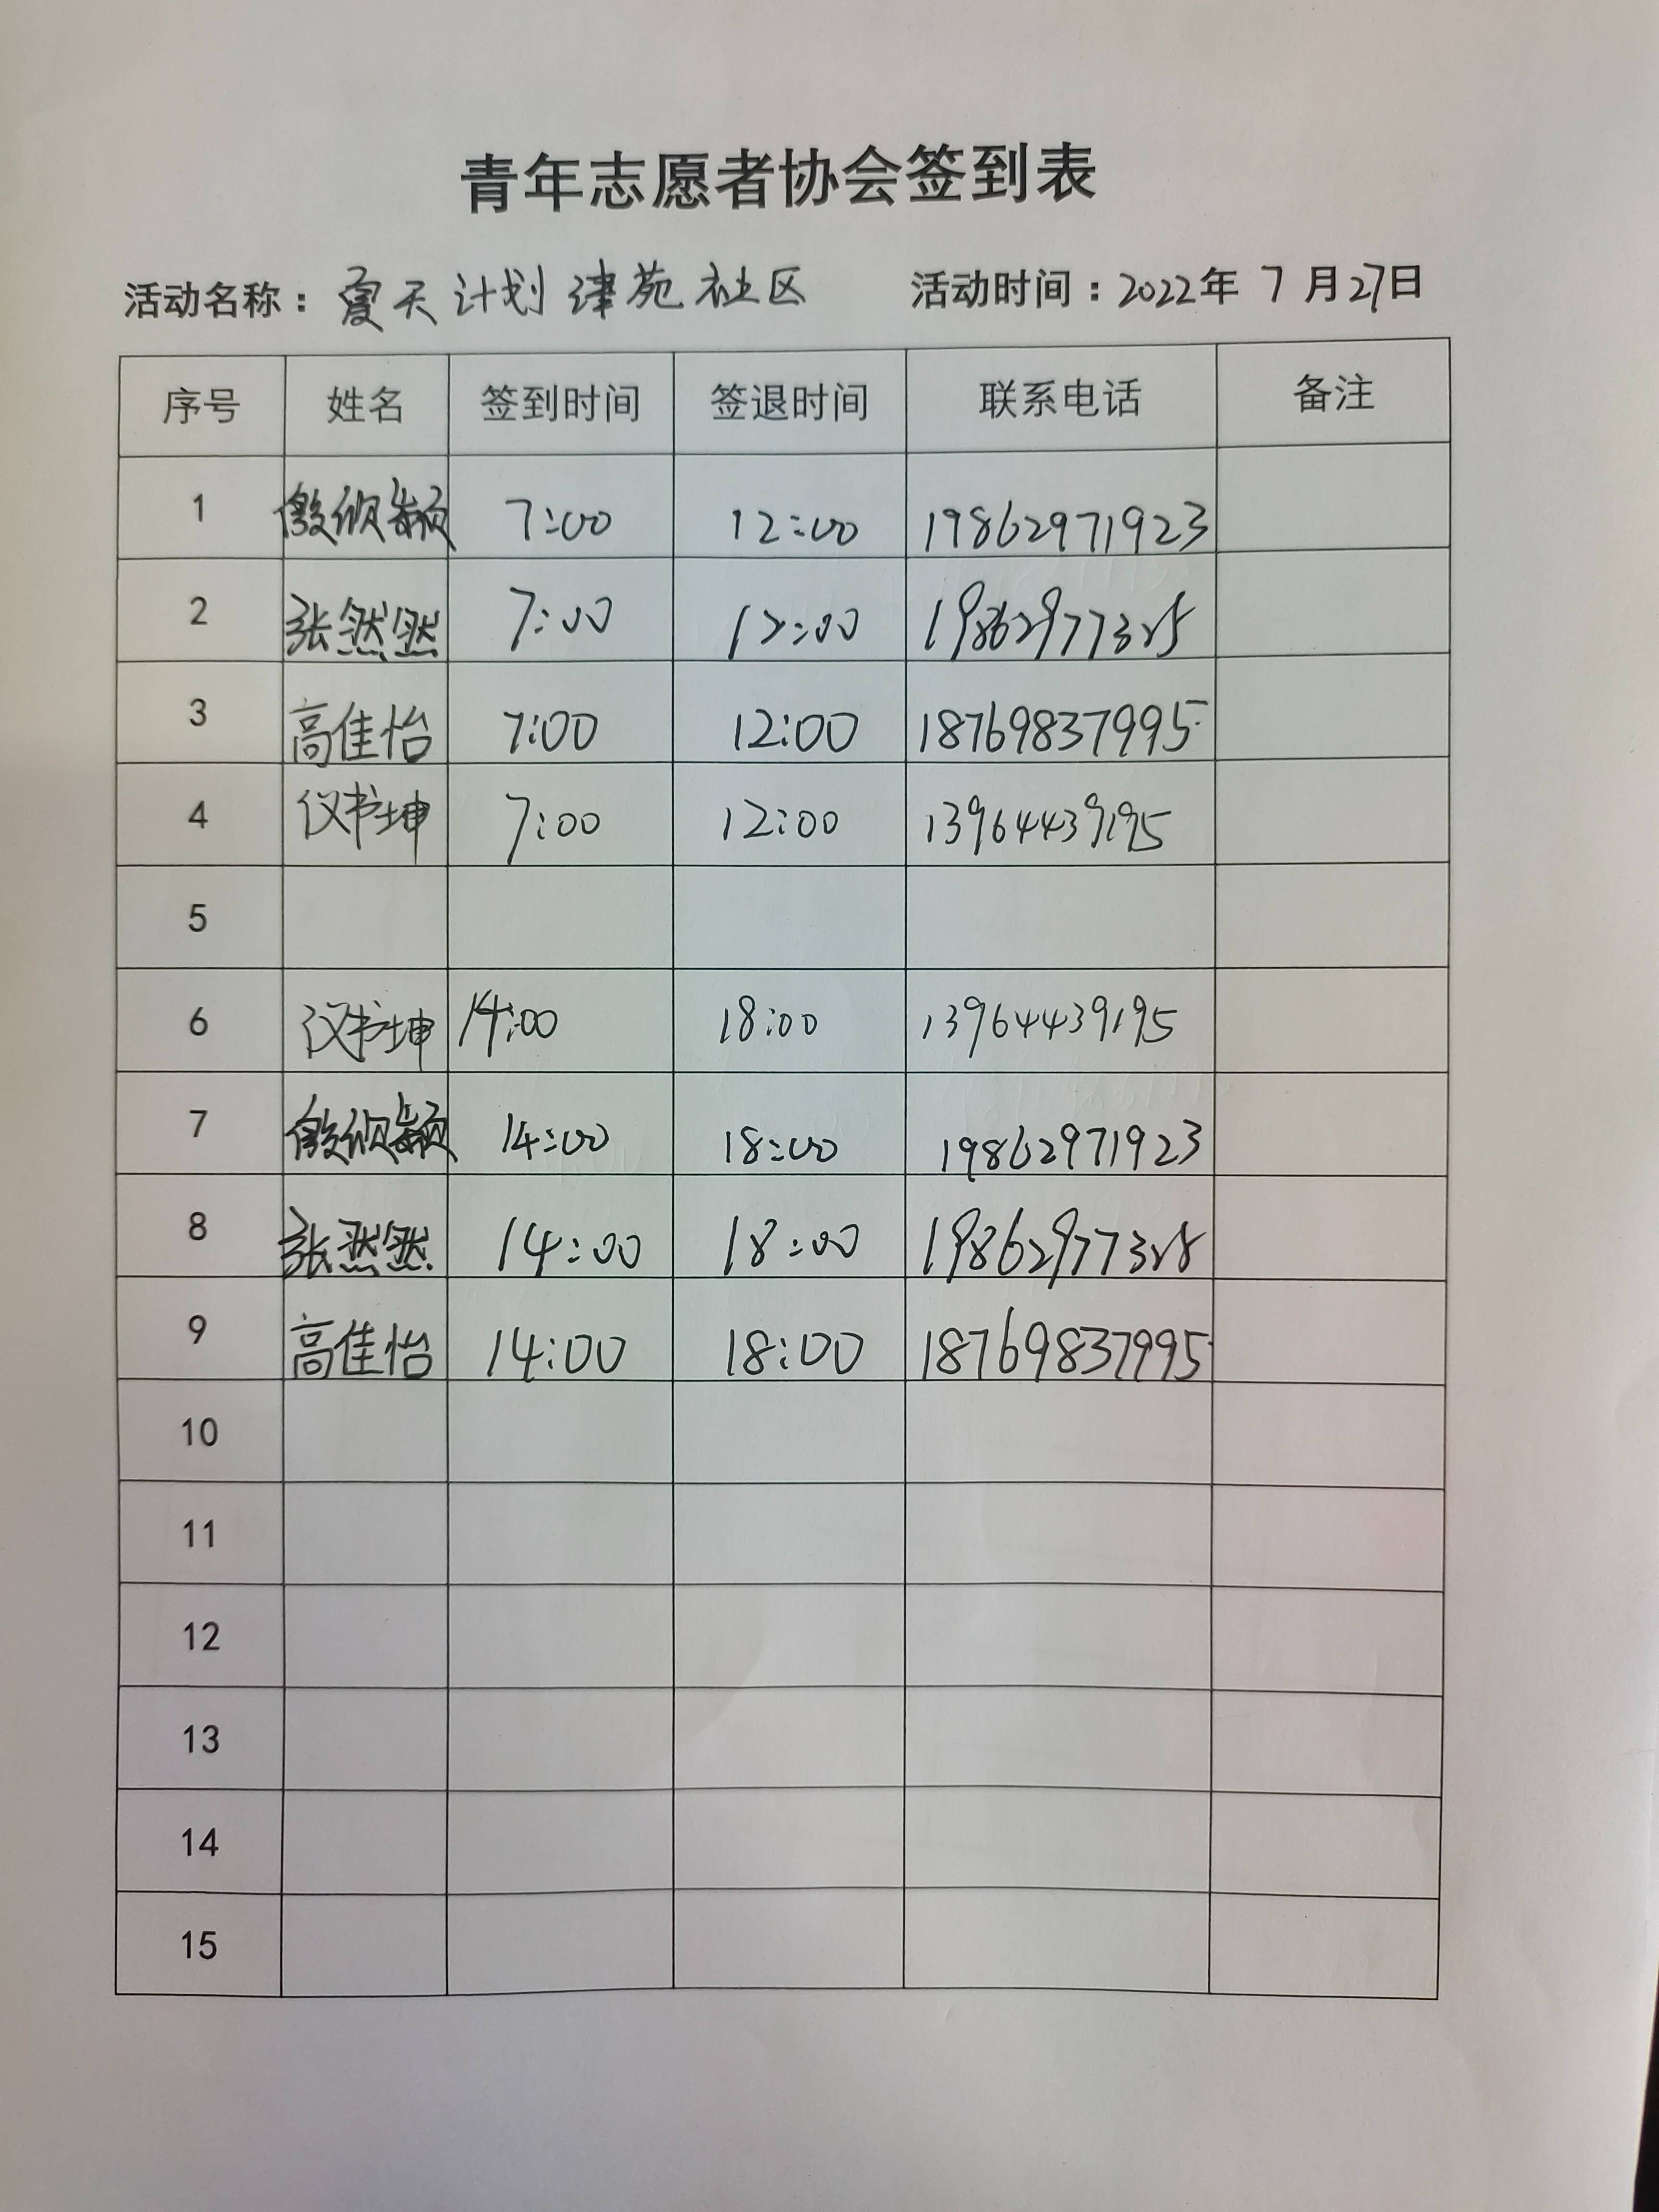 青年志愿者协会签到表
活动名称：夏天计划津苑社区 活动时间：2022年 7 月27日
序号 姓名 签到时间 签退时间 联系电话 备注
1 7:00 12:00 19862971923
2 张然然 7:00 12:00 19862977325
3 高佳怡 7:00 12:00 18769837995
4 仪书坤 7:00 12:00 13964439195
5
6 仪书坤 14:00 18:00 13964439195
7 14:00 18:00 19862971923
8 张然然 14:00 18:00 19862977325
9 高佳怡 14:00 18:00 18769837995
10
11
12
13
14
15